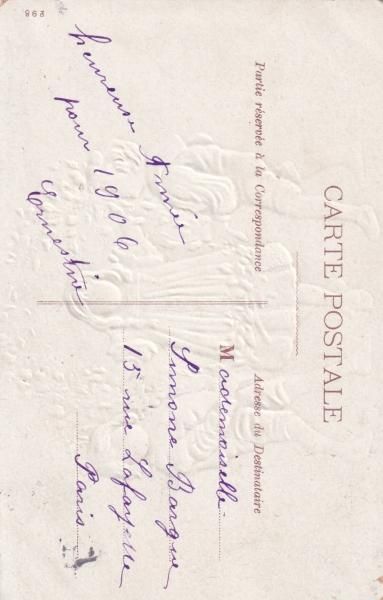 CARTE POSTALE
Partie réservée à la Correspondance
Adresse du Destinataire
heureuse Année
pour 1906
Ernestine
Mademoiselle
Simone Bargue
15 rue Lafayette
Paris